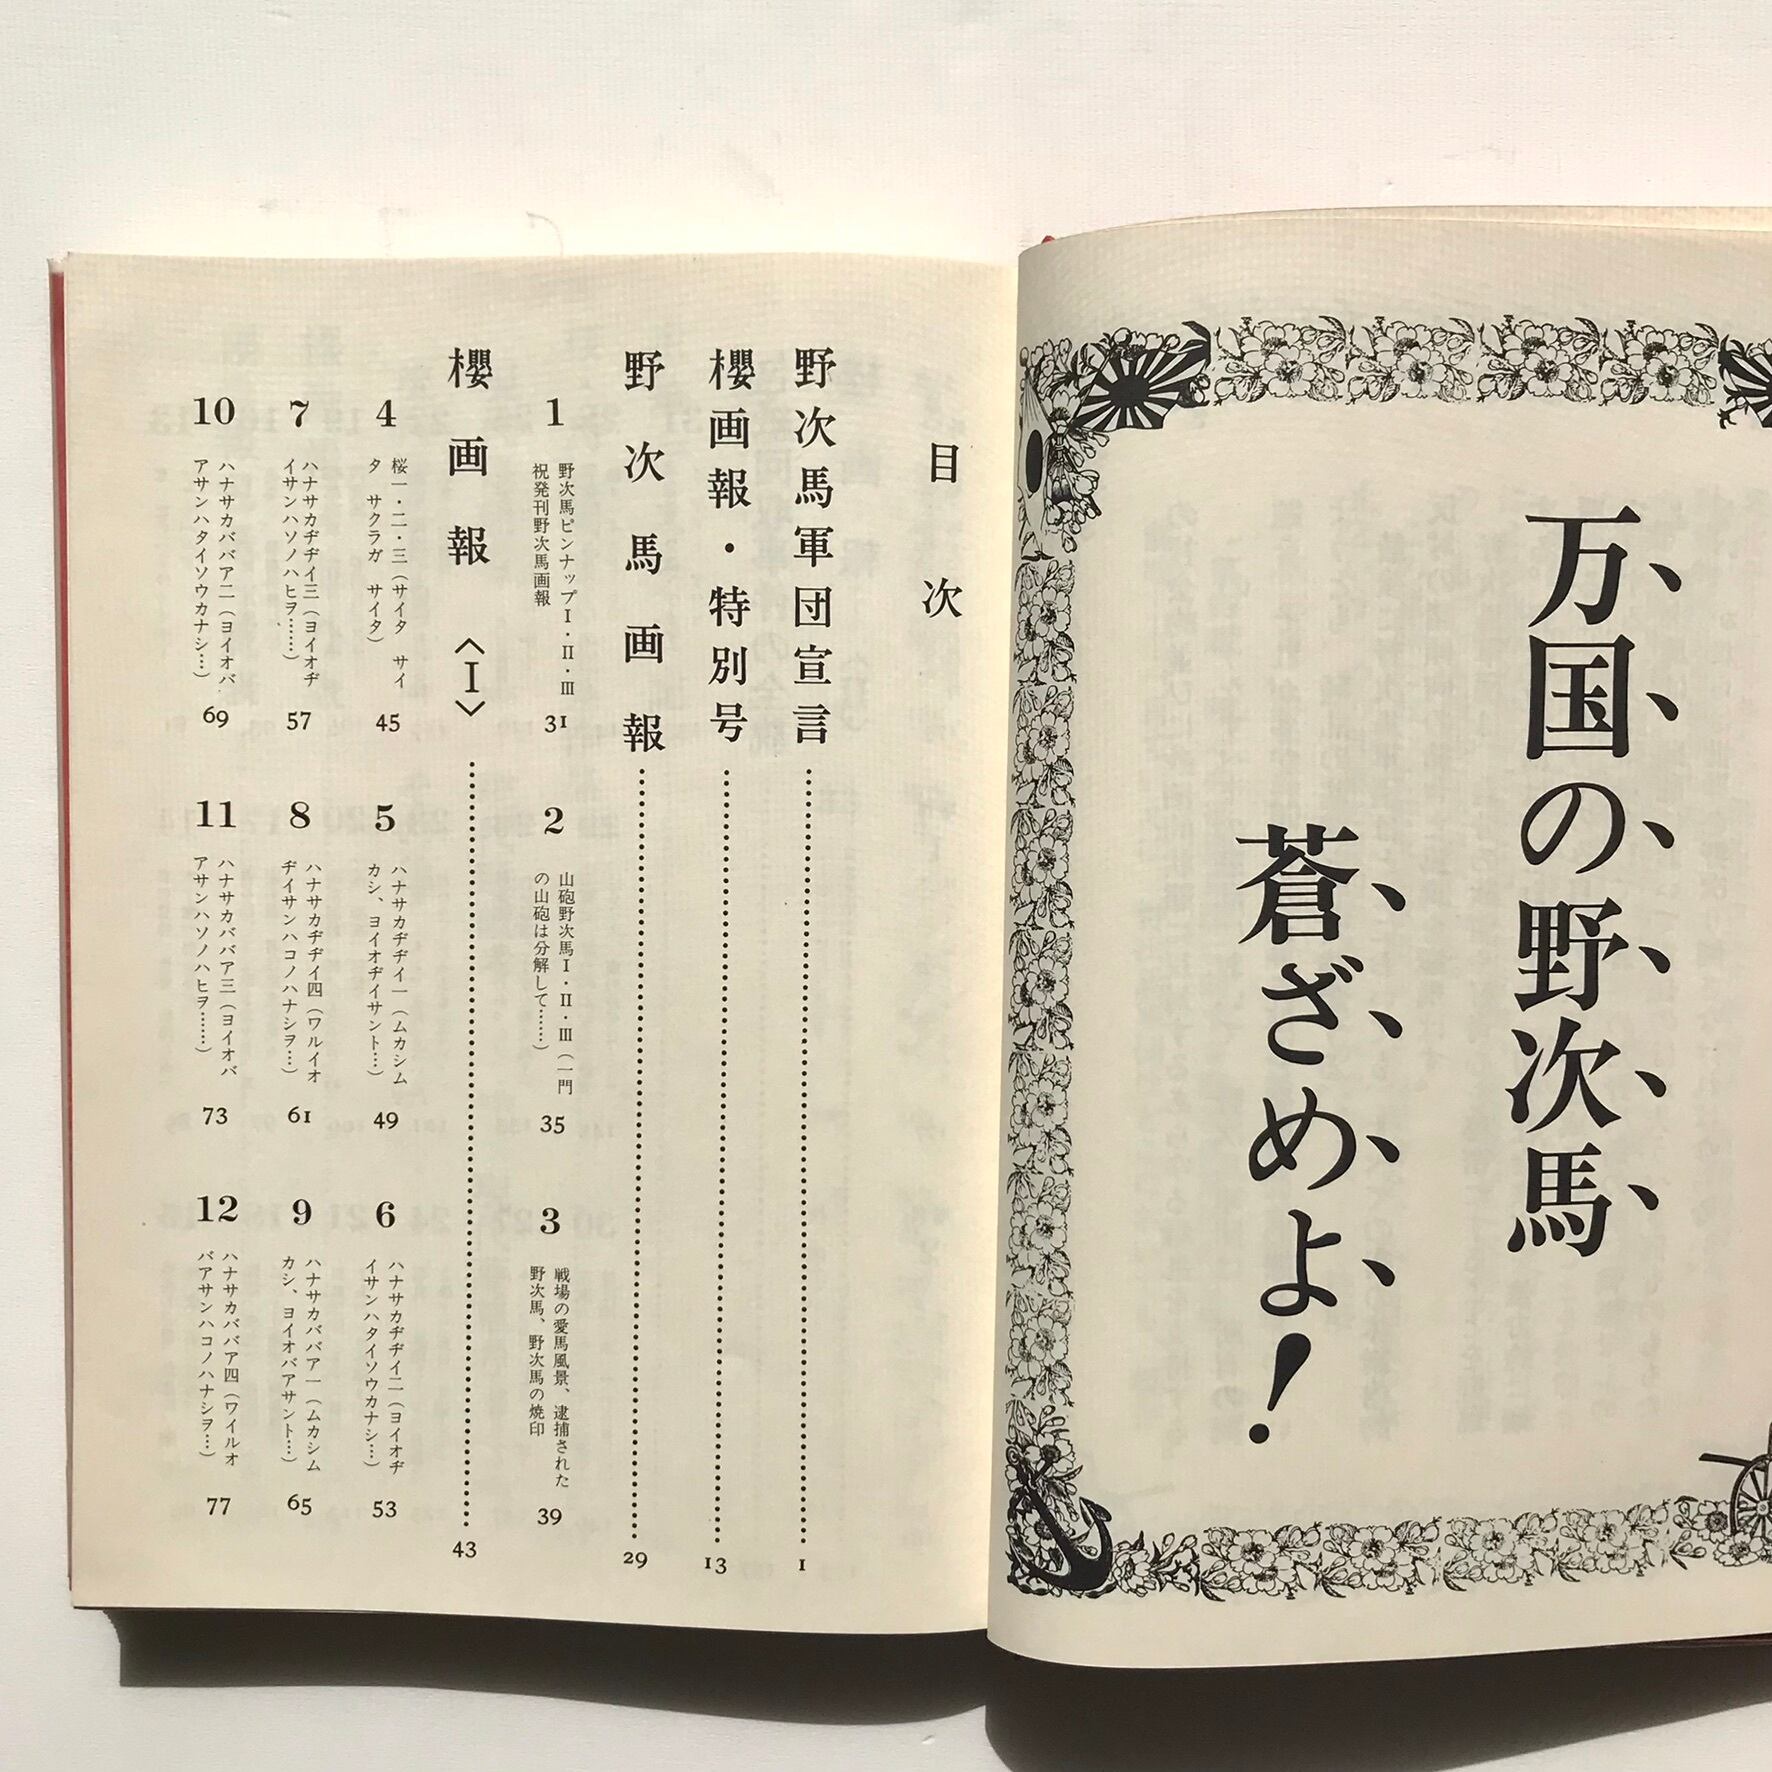 万国の野次馬
蒼ざめよ!
目次
野次馬軍団宣言 1
櫻画報・特別号 13
野次馬画報 29
1
野次馬ピンナップⅠ・Ⅱ・Ⅲ
祝発刊野次馬画報
31
2
山砲野次馬Ⅰ・Ⅱ・Ⅲ(一門
の山砲は分解して……)
35
3
戦場の愛馬風景、逮捕された
野次馬、野次馬の焼印
39
櫻画報〈Ⅰ〉 43
4
桜一・二・三(サイタ サイ
タ サクラガ サイタ)
45
5
ハナサカヂヂイ一(ムカシム
カシ、ヨイオヂイサント…)
49
6
ハナサカヂヂイ二(ヨイオヂ
イサンハタイソウカナシ…)
53
7
ハナサカヂヂイ三(ヨイオヂ
イサンハソノハヒヲ……)
57
8
ハナサカヂヂイ四(ワルイオ
ヂイサンハコノハナシヲ…)
61
9
ハナサカババア一(ムカシム
カシ、ヨイオバアサント…)
65
10
ハナサカババア二(ヨイオバ
アサンハタイソウカナシ…)
69
11
ハナサカババア三(ヨイオバ
アサンハソノハヒヲ……)
73
12
ハナサカババア四(ワイルオ
バアサンハコノハナシヲ…)
77